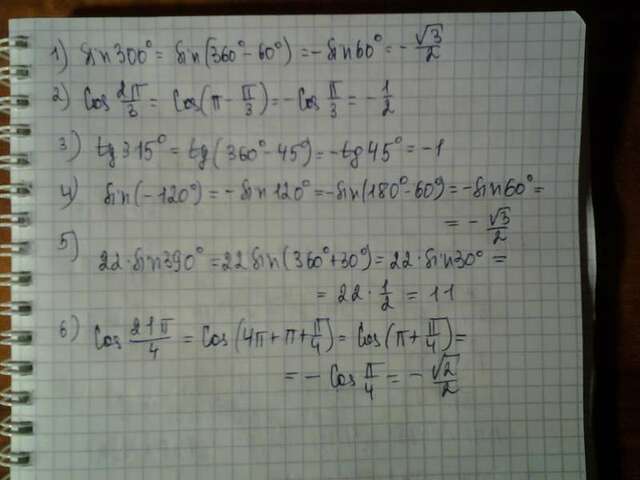 1) sin 300° = sin(360°-60°) = -sin 60° = -√3/2
2) Cos 2π/3 = Cos(π - π/3) = -Cos π/3 = -1/2
3) tg 315° = tg(360°-45°) = -tg 45° = -1
4) sin(-120°) = -sin 120° = -sin(180°-60°) = -sin 60° =
= -√3/2
5) 22·sin 390° = 22 sin(360°+30°) = 22·sin 30° =
= 22·1/2 = 11
6) Cos 21π/4 = Cos(4π+π+π/4) = Cos(π+π/4) =
= -Cos π/4 = -√2/2